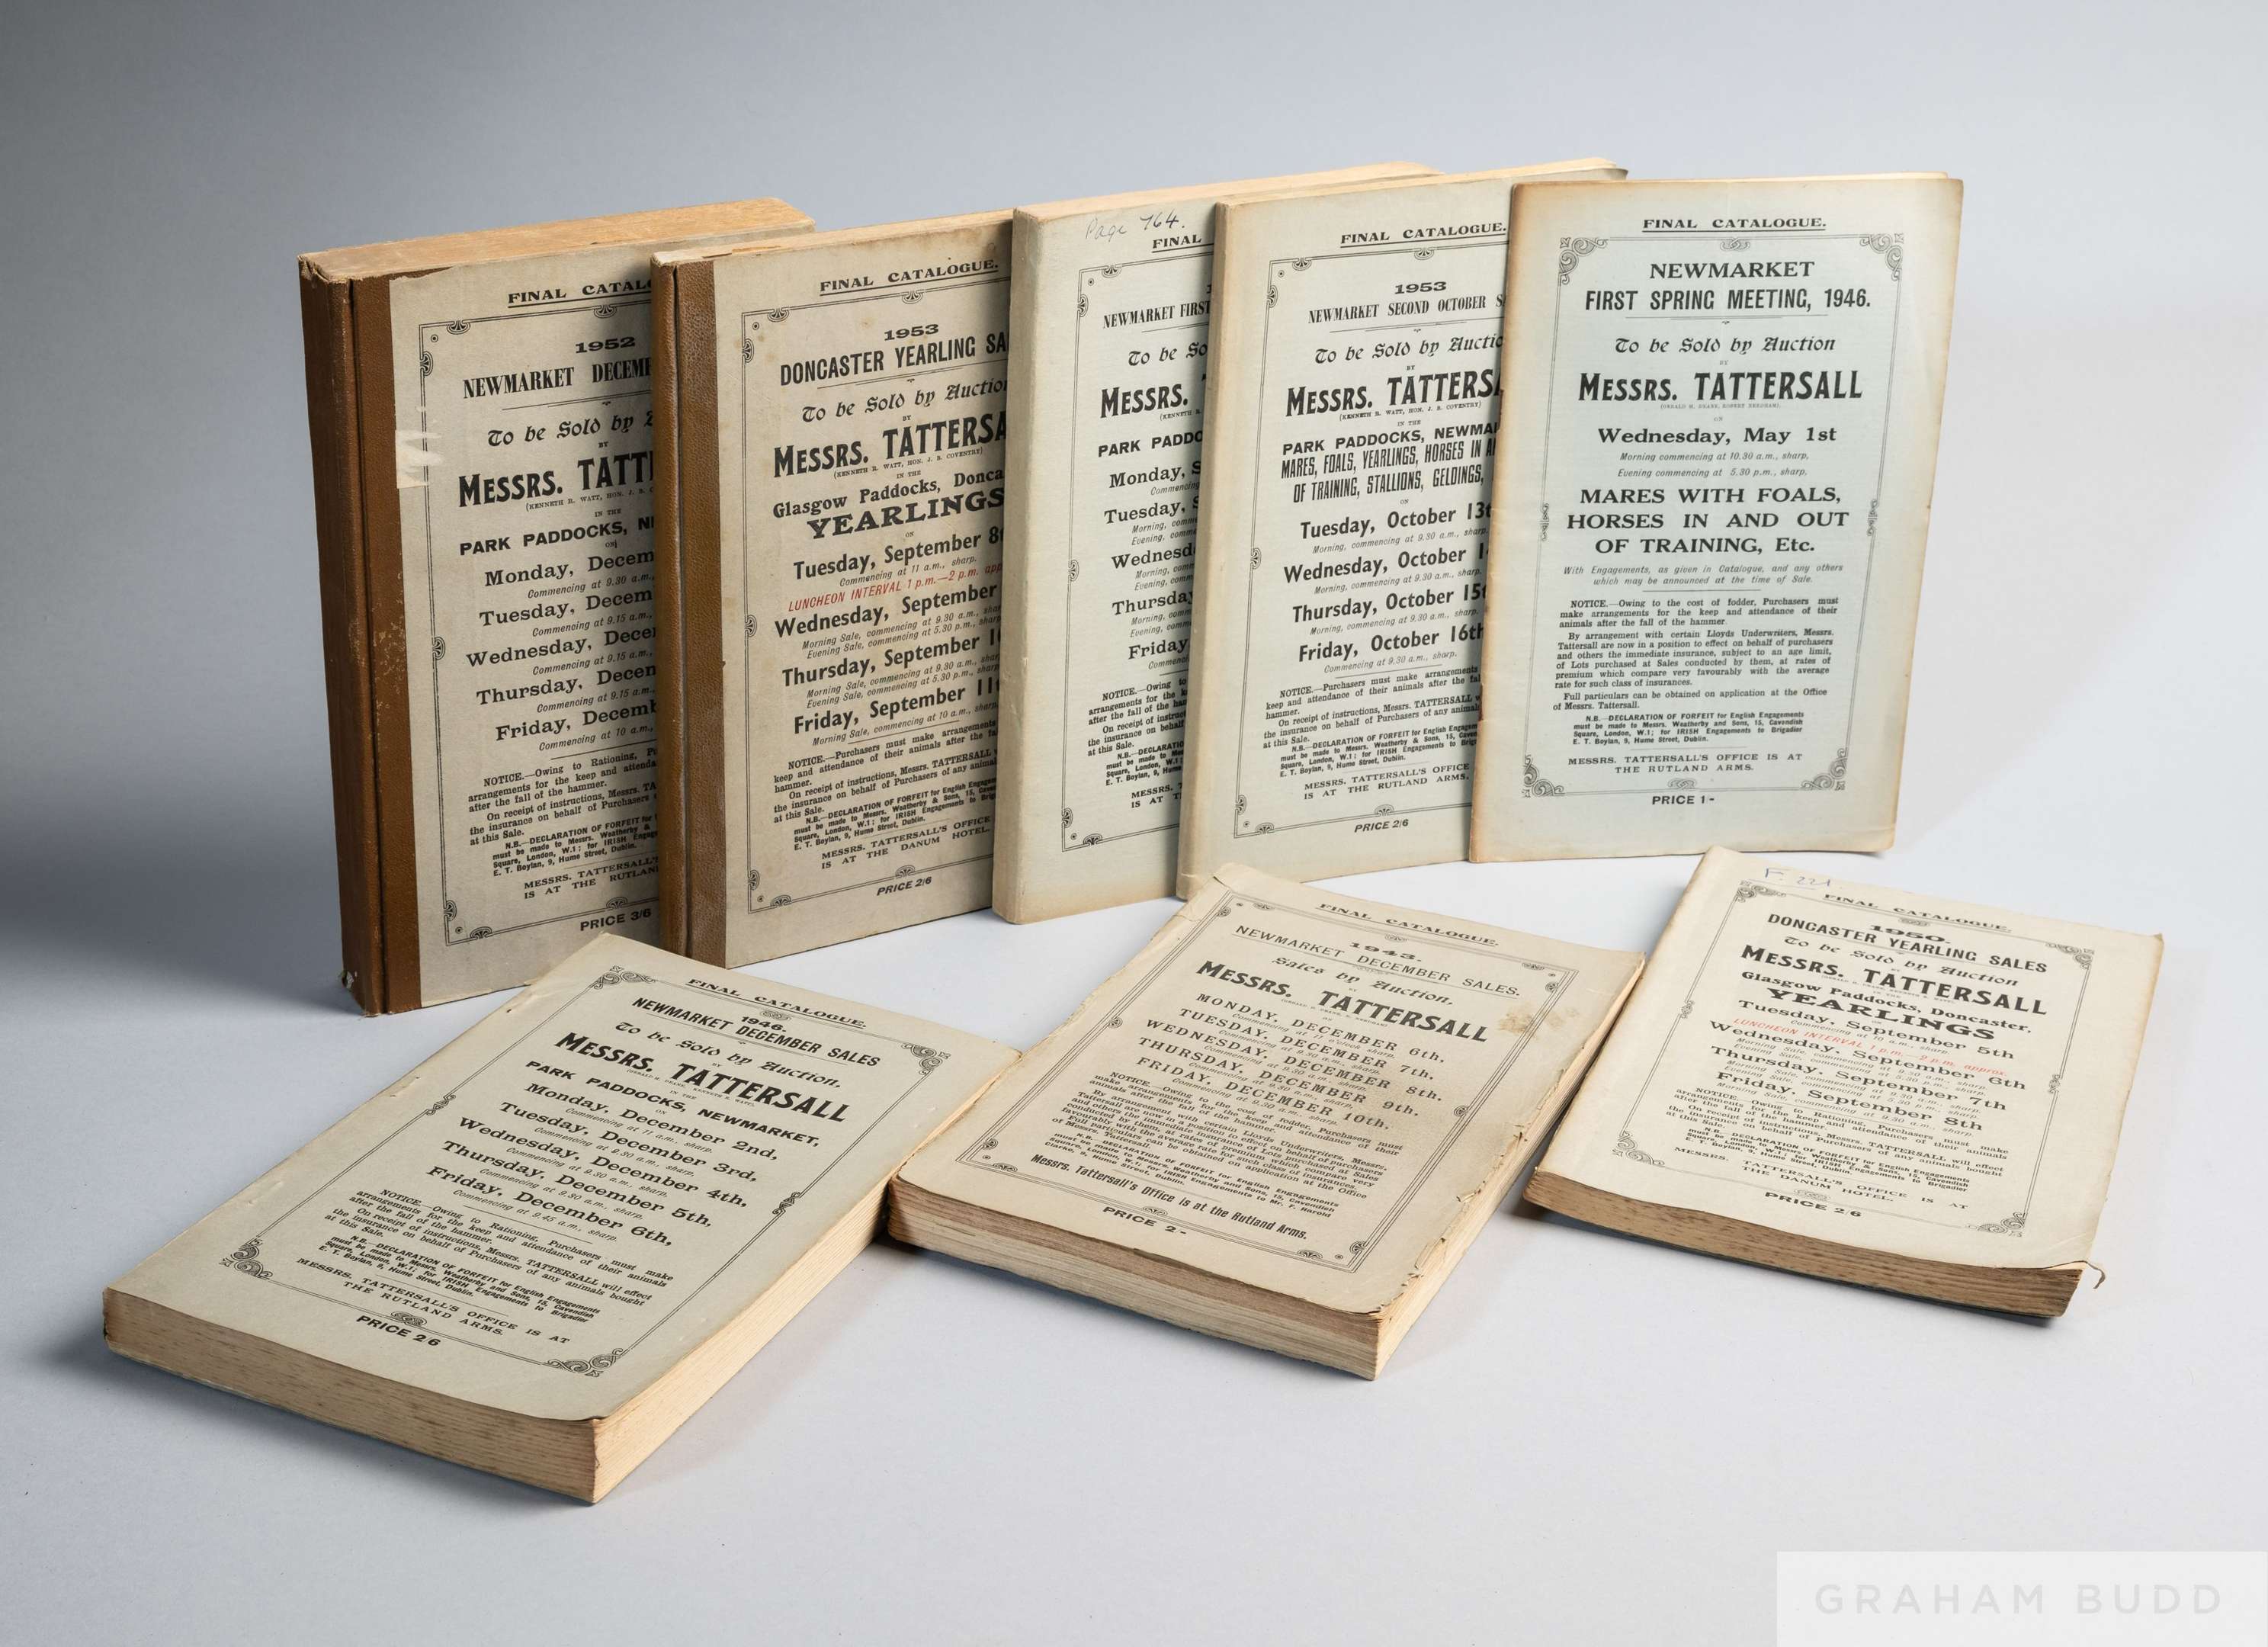 FINAL CATALO
1952
NEWMARKET DECEM
To be Sold by
MESSRS. TATT
(KENNETH R. WATT, HON. J. B. C
IN THE
PARK PADDOCKS, N
ON
Monday, Decem
Commencing at 9.30 a.m.,
Tuesday, Decem
Commencing at 9.15 a.m.,
Wednesday, Dece
Commencing at 9.15 a.m.,
Thursday, Decen
Commencing at 9.15 a.m.,
Friday, Decemb
Commencing at 10 a.m.,
NOTICE.—Owing to Rationing, P
arrangements for the keep and attenda
after the fall of the hammer.
On receipt of instructions, Messrs. TA
the insurance on behalf of Purchasers
at this Sale.
N.B.—DECLARATION OF FORFEIT for
must be made to Messrs. Weatherby &
Square, London, W.1; for IRISH Engage
E. T. Boylan, 9, Hume Street, Dublin.
MESSRS. TATTERSALL'
IS AT THE RUTLAN
PRICE 3/6
FINAL CATALOGUE.
1953
DONCASTER YEARLING SA
To be Sold by Auctio
BY
MESSRS. TATTERSA
(KENNETH R. WATT, HON. J. B. COVENTRY)
IN THE
Glasgow Paddocks, Donca
YEARLINGS
ON
Tuesday, September 8
Commencing at 11 a.m., sharp.
LUNCHEON INTERVAL 1 p.m.—2 p.m. app
Wednesday, September
Morning Sale, commencing at 9.30 a.m., shar
Evening Sale, commencing at 5.30 p.m., sharp
Thursday, September 1
Morning Sale, commencing at 9.30 a.m., shar
Evening Sale, commencing at 5.30 p.m., sharp
Friday, September 11
Morning Sale, commencing at 10 a.m., sharp.
NOTICE.—Purchasers must make arrangements
keep and attendance of their animals after the fa
hammer.
On receipt of instructions, Messrs. TATTERSALL
the insurance on behalf of Purchasers of any animal
at this Sale.
N.B.—DECLARATION OF FORFEIT for English Engagem
must be made to Messrs. Weatherby & Sons, 15, Caven
Square, London, W.1; for IRISH Engagements to Brig
E. T. Boylan, 9, Hume Street, Dublin.
MESSRS. TATTERSALL'S OFFICE
IS AT THE DANUM HOTEL.
PRICE 2/6
Page 764.
FINAL
1
NEWMARKET FIRST
To be So
MESSRS.
(KENNETH R
PARK PADDO
Monday, S
Commencing
Tuesday, S
Morning, comm
Evening, comm
Wednesd
Morning, comm
Evening, comm
Thursda
Morning, comm
Evening, comm
Friday
Commenc
NOTICE.—Owing to
arrangements for the k
after the fall of the ham
On receipt of instruc
the insurance on behalf
at this Sale.
N.B.—DECLARATIO
must be made to Mess
Square, London, W.1;
E. T. Boylan, 9, Hume
MESSRS. T
IS AT T
FINAL CATALOGUE.
1953
NEWMARKET SECOND OCTOBER S
To be Sold by Auctio
BY
MESSRS. TATTERSA
(KENNETH R. WATT, HON. J. B. COVENTRY)
IN THE
PARK PADDOCKS, NEWMA
MARES, FOALS, YEARLINGS, HORSES IN A
OF TRAINING, STALLIONS, GELDINGS,
ON
Tuesday, October 13t
Morning, commencing at 9.30 a.m., sharp.
Wednesday, October 1
Morning, commencing at 9.30 a.m., sharp.
Thursday, October 15t
Morning, commencing at 9.30 a.m., sharp.
Friday, October 16th
Commencing at 9.30 a.m., sharp.
NOTICE.—Purchasers must make arrangements
keep and attendance of their animals after the fal
hammer.
On receipt of instructions, Messrs. TATTERSALL
the insurance on behalf of Purchasers of any animal
at this Sale.
N.B.—DECLARATION OF FORFEIT for English Engagem
must be made to Messrs. Weatherby & Sons, 15, Caven
Square, London, W.1; for IRISH Engagements to Brig
E. T. Boylan, 9, Hume Street, Dublin.
MESSRS. TATTERSALL'S OFFICE
IS AT THE RUTLAND ARMS.
PRICE 2/6
FINAL CATALOGUE.
NEWMARKET
FIRST SPRING MEETING, 1946.
To be Sold by Auction
BY
MESSRS. TATTERSALL
(GERALD M. DEANE, ROBERT NEEDHAM).
ON
Wednesday, May 1st
Morning commencing at 10.30 a.m., sharp,
Evening commencing at 5.30 p.m., sharp.
MARES WITH FOALS,
HORSES IN AND OUT
OF TRAINING, Etc.
With Engagements, as given in Catalogue, and any others
which may be announced at the time of Sale.
NOTICE.—Owing to the cost of fodder, Purchasers must
make arrangements for the keep and attendance of their
animals after the fall of the hammer.
By arrangement with certain Lloyds Underwriters, Messrs.
Tattersall are now in a position to effect on behalf of purchasers
and others the immediate insurance, subject to an age limit,
of Lots purchased at Sales conducted by them, at rates of
premium which compare very favourably with the average
rate for such class of insurances.
Full particulars can be obtained on application at the Office
of Messrs. Tattersall.
N.B.—DECLARATION OF FORFEIT for English Engagements
must be made to Messrs. Weatherby and Sons, 15, Cavendish
Square, London, W.1; for IRISH Engagements to Brigadier
E. T. Boylan, 9, Hume Street, Dublin.
MESSRS. TATTERSALL'S OFFICE IS AT
THE RUTLAND ARMS.
PRICE 1-
FINAL CATALOGUE.
1946.
NEWMARKET DECEMBER SALES
To be Sold by Auction,
BY
MESSRS. TATTERSALL
IN THE
PARK PADDOCKS, NEWMARKET,
ON
Monday, December 2nd,
Commencing at 11 a.m., sharp.
Tuesday, December 3rd,
Commencing at 9.30 a.m., sharp.
Wednesday, December 4th,
Commencing at 9.30 a.m., sharp.
Thursday, December 5th,
Commencing at 9.30 a.m., sharp.
Friday, December 6th,
Commencing at 9.45 a.m., sharp.
NOTICE.—Owing to Rationing, Purchasers must make
arrangements for the keep and attendance of their animals
after the fall of the hammer.
On receipt of instructions, Messrs. TATTERSALL will effect
the insurance on behalf of Purchasers of any animals bought
at this Sale.
N.B.—DECLARATION OF FORFEIT for English Engagements
must be made to Messrs. Weatherby and Sons, 15, Cavendish
Square, London, W.1; for IRISH Engagements to Brigadier
E. T. Boylan, 9, Hume Street, Dublin.
MESSRS. TATTERSALL'S OFFICE IS AT
THE RUTLAND ARMS.
PRICE 2 6
FINAL CATALOGUE.
1943.
NEWMARKET DECEMBER SALES.
Sales by Auction.
BY
MESSRS. TATTERSALL
MONDAY, DECEMBER 6th.
TUESDAY, DECEMBER 7th.
Commencing at 9.30 a.m., sharp.
WEDNESDAY, DECEMBER 8th.
Commencing at 9.30 a.m., sharp.
THURSDAY, DECEMBER 9th.
Commencing at 9.30 a.m., sharp.
FRIDAY, DECEMBER 10th.
Commencing at 9.30 a.m., sharp.
NOTICE.—Owing to the cost of fodder, Purchasers must
make arrangements for the keep and attendance of their
animals after the fall of the hammer.
By arrangement with certain Lloyds Underwriters, Messrs.
Tattersall are now in a position to effect on behalf of purchasers
and others the immediate insurance of Lots purchased at Sales
conducted by them, at rates of premium which compare very
favourably with the average rate for such class of insurances.
Full particulars can be obtained on application at the Office
of Messrs. Tattersall.
N.B.—DECLARATION OF FORFEIT for English Engagements
must be made to Messrs. Weatherby and Sons, 15, Cavendish
Square, London, W.1; for IRISH Engagements to Mr. F. Harold
Clarke, 9, Hume Street, Dublin.
Messrs. Tattersall's Office is at the Rutland Arms.
PRICE 2-
F. 221.
FINAL CATALOGUE.
1950.
DONCASTER YEARLING SALES
To be Sold by Auction
BY
MESSRS. TATTERSALL
Glasgow Paddocks, Doncaster.
YEARLINGS
Tuesday, September 5th
Commencing at 10 a.m., sharp.
LUNCHEON INTERVAL 1 p.m.—2 p.m. approx.
Wednesday, September 6th
Morning Sale, commencing at 9.30 a.m., sharp.
Evening Sale, commencing at 5.30 p.m., sharp.
Thursday, September 7th
Morning Sale, commencing at 9.30 a.m., sharp.
Evening Sale, commencing at 5.30 p.m., sharp.
Friday, September 8th
NOTICE.—Owing to Rationing, Purchasers must make
arrangements for the keep and attendance of their animals
after the fall of the hammer.
On receipt of instructions, Messrs. TATTERSALL will effect
the insurance on behalf of Purchasers of any animals bought
at this Sale.
N.B.—DECLARATION OF FORFEIT for English Engagements
must be made to Messrs. Weatherby & Sons, 15, Cavendish
Square, London, W.1; for IRISH Engagements to Brigadier
E. T. Boylan, 9, Hume Street, Dublin.
MESSRS. TATTERSALL'S OFFICE IS AT
THE DANUM HOTEL.
PRICE 2 6
GRAHAM BUDD